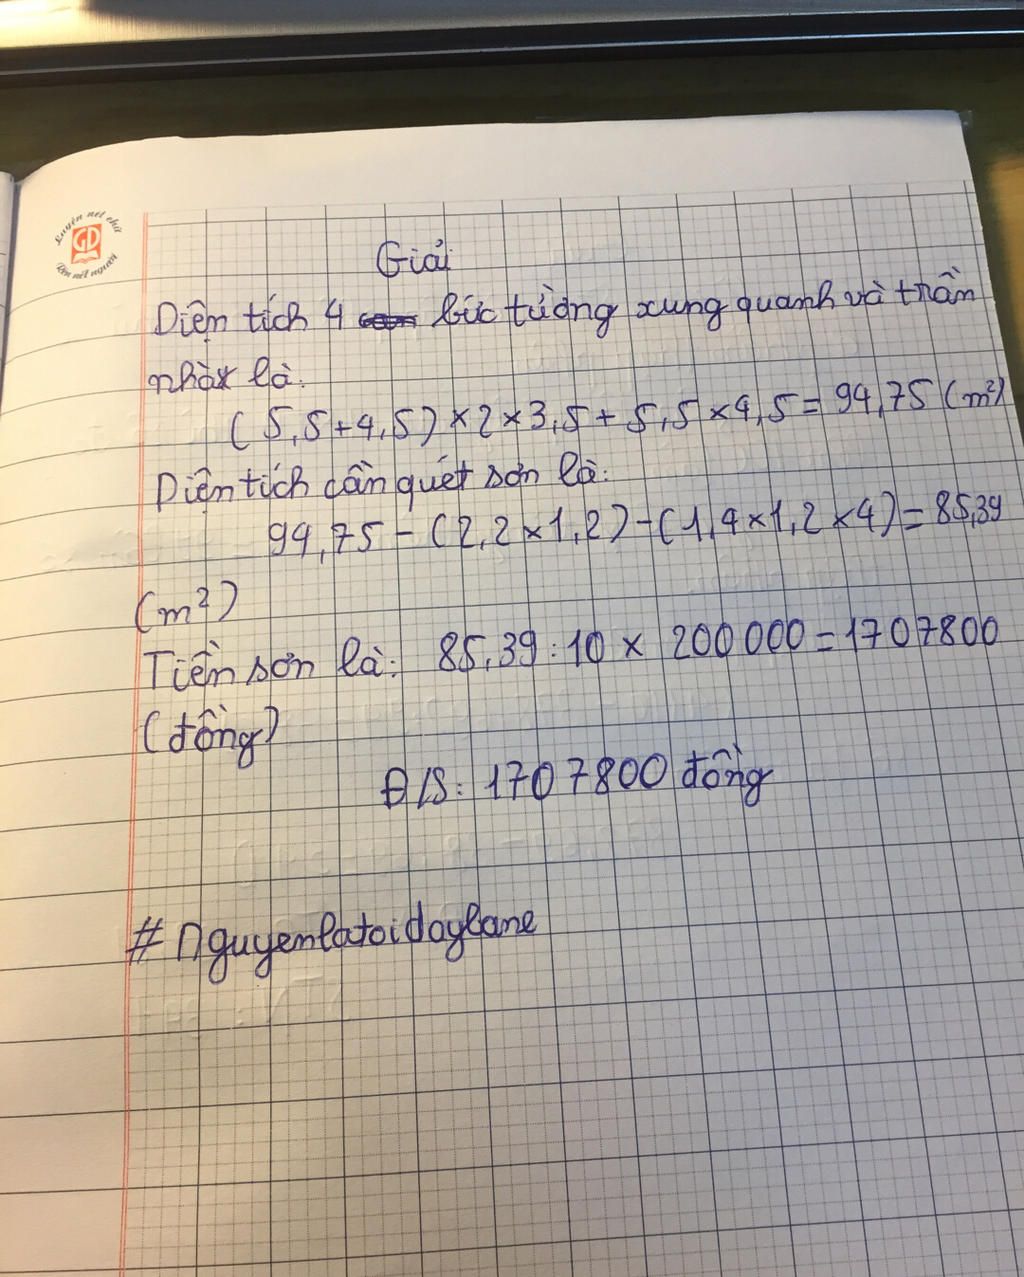 Luyện nét chữ
GD
Rèn nết người
Giải
Diện tích 4 bức tường xung quanh và trần
nhà là:
(5,5+4,5)×2×3,5+5,5×4,5=94,75(m²)
Diện tích cần quét sơn là:
94,75-(2,2×1,2)-(1,4×1,2×4)=85,39
(m²)
Tiền sơn là: 85,39:10×200000=1707800
(đồng)
Đ/S: 1707800 đồng
#nguyenlatoidaylane